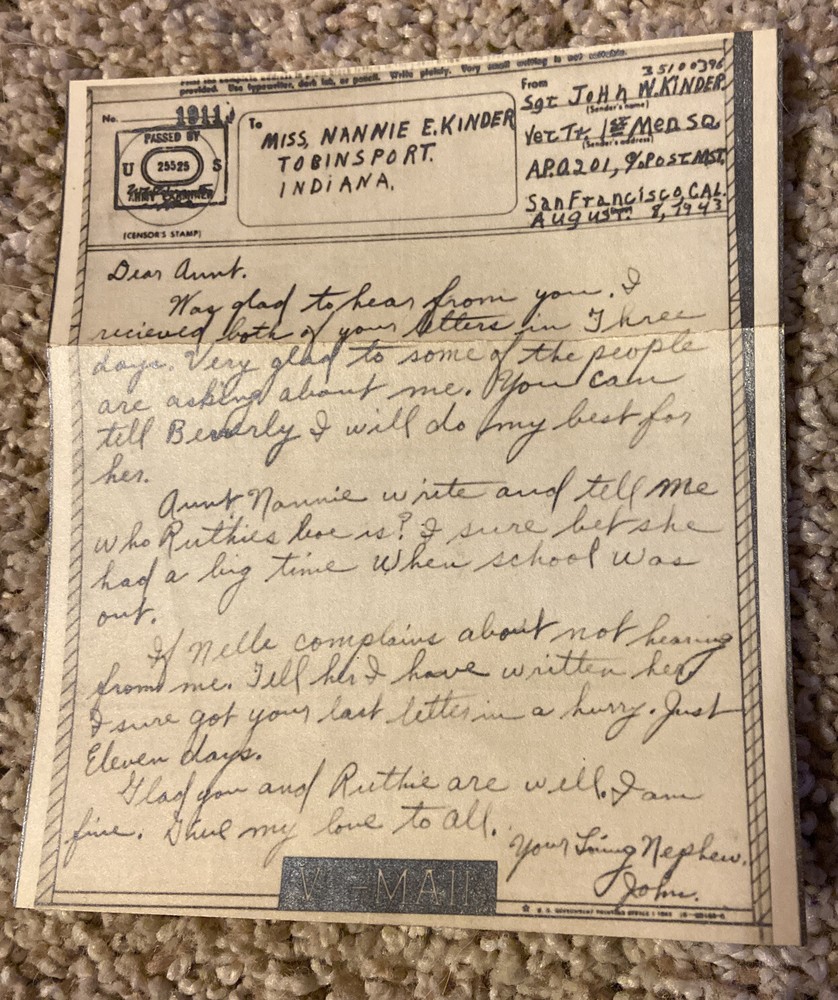 provided. Use typewriter, dark ink, or pencil. Write plainly. Very small writing is not suitable.
No. 1911
PASSED BY
U 25525 S
ARMY EXAMINER
(CENSOR'S STAMP)
To
MISS, NANNIE E. KINDER
TOBINSPORT.
INDIANA.
From 35100396
Sgt JOHN W. KINDER
(Sender's name)
Vet Tr 1st Med Sq
(Sender's address)
A.P.O. 201, % POST. MST.
San Francisco, CAL.
AUGUST. 8, 1943
Dear Aunt.
Was glad to hear from you. I
recieved both of your letters in Three
days. Very glad to some of the people
are asking about me. You can
tell Beverly I will do my best for
her.
Aunt Nannie write and tell me
who Ruthies beoe is? I sure bet she
had a big time when school was
out.
If Nelle complains about not hearing
from me. Tell her I have written her
I sure got your last letter in a hurry. Just
Eleven days.
Glad you and Ruthie are well. I am
fine. Give my love to all.
Your Loving Nephew.
John.
V-MAIL